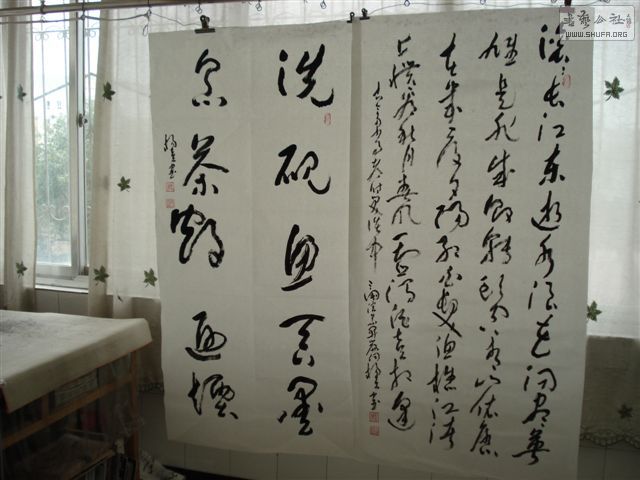 書藝公社
WWW.SHUFA.ORG
滚〻长江东逝水浪花淘尽英
雄是非成败转头空青山依旧
在几度夕阳红白发渔樵江渚
上惯看秋月春风一壶浊酒喜相逢
古今多少事都付笑谈中
洗砚鱼吞墨
烹茶鹤避烟